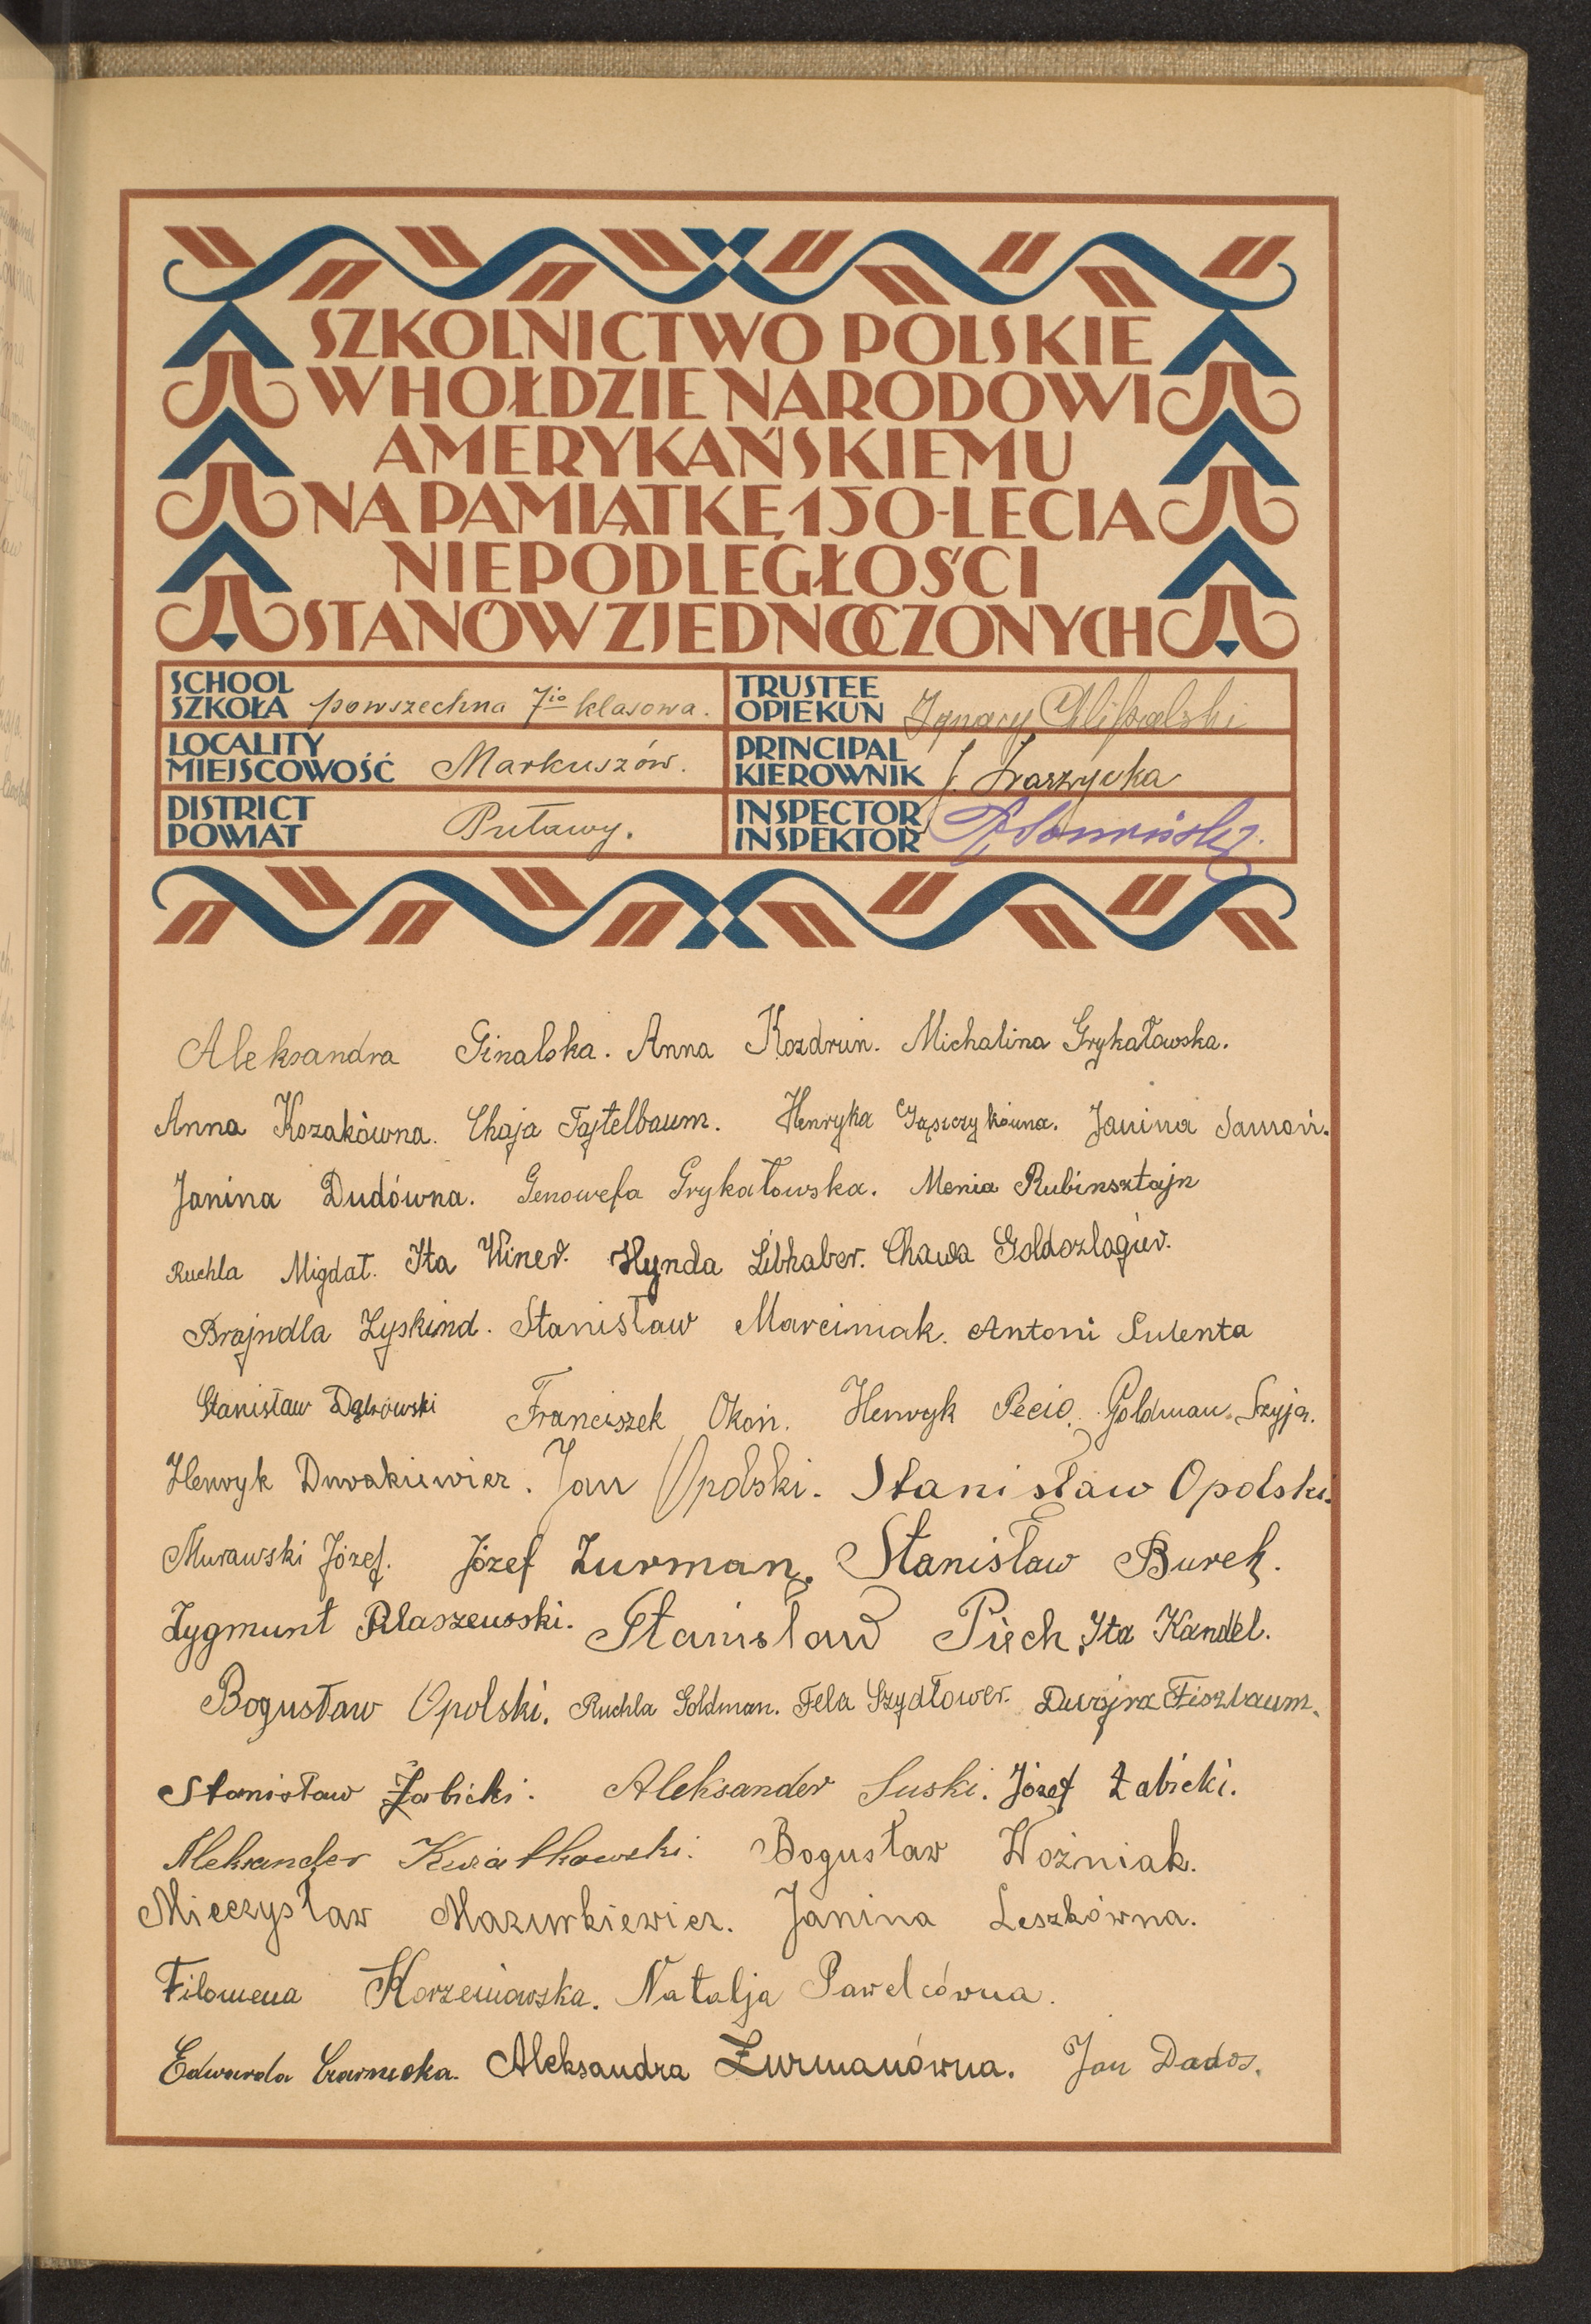 SZKOLNICTWO POLSKIE
W HOŁDZIE NARODOWI
AMERYKAŃSKIEMU
NA PAMIĄTKĘ 150-LECIA
NIEPODLEGŁOŚCI
STANÓW ZJEDNOCZONYCH
SCHOOL
SZKOŁA powszechna 7io klasowa.
TRUSTEE
OPIEKUN Ignacy
LOCALITY
MIEJSCOWOŚĆ Markuszów.
PRINCIPAL
KIEROWNIK J.
DISTRICT
POWIAT Puławy.
INSPECTOR
INSPEKTOR
Aleksandra Ginalska. Anna Kozdrun. Michalina Grykałowska.
Anna Kozakówna. Chaja Tajtelbaum. Henryka Janina Samoń.
Janina Dudówna. Genowefa Grykałowska. Menia Rubinsztajn
Ruchla Migdał. Ita Winer. Hynda Libhaber. Chawa
Brajndla Zyskind. Stanisław Marciniak. Antoni Sulenta
Stanisław Dąbrowski Franciszek Okoń. Henryk Pecio. Goldman Szyja.
Henryk Jan Opolski. Stanisław Opolski.
Murawski Józef. Józef Zurman. Stanisław Burek.
Zygmunt Stanisław Piech Ita Kandel.
Bogusław Opolski. Ruchla Goldman. Fela Szydłower. Dwojra Fiszbaum.
Stanisław Żabicki. Aleksander Suski. Józef Żabicki.
Aleksander Kwiatkowski. Bogusław Woźniak.
Mieczysław Mazurkiewicz. Janina Leszkówna.
Filomena Korzeniowska. Natalja Pawelcówna.
Edwarda Czarnecka. Aleksandra Żurmanówna. Jan Dados.